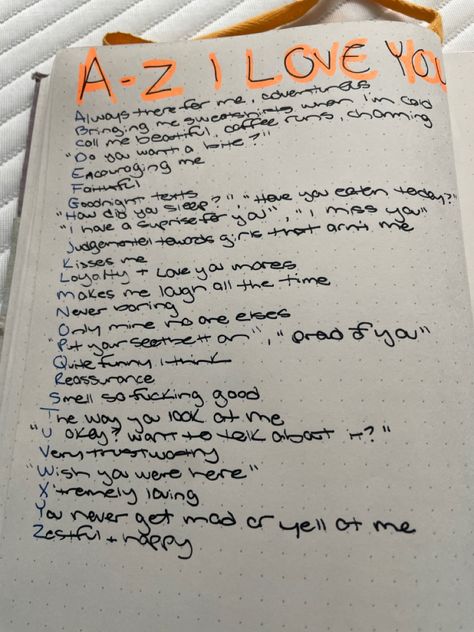 A-Z I LOVE YOU
Always there for me, adventurous
Bringing me sweatshirts when i'm cold
Call me beautiful, coffee runs, charming
"Do you want a bite?"
Encouraging me
Faithful
Goodnight texts
"How did you sleep?", "Have you eaten today?"
"I have a suprise for you", "I miss you"
Judgemental towards girls that arn't me
Kisses me
Loyalty + Love you mores
Makes me laugh all the time
Never boring
Only mine no one elses
"Put your seatbelt on", "Proad of you"
Quite funny i think
Reassurance
Smell so fucking good
The way you look at me
"U okay? want to talk about it?"
Very trustworthy
"Wish you were here"
X'tremely loving
You never get mad or yell at me
Zestful + happy